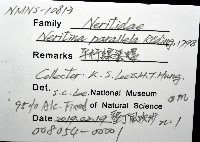 NMNS-10813
Family Neritidae
Neritina parallela Röding, 1798
Remarks 平行線蜑螺
Collector: K. S. Lee & H.T. Hung.
Det. S.C. Lee. National Museum
95% Alc. Fixed of Natural Science
Date 2019.02.19 n:1
008054-00001